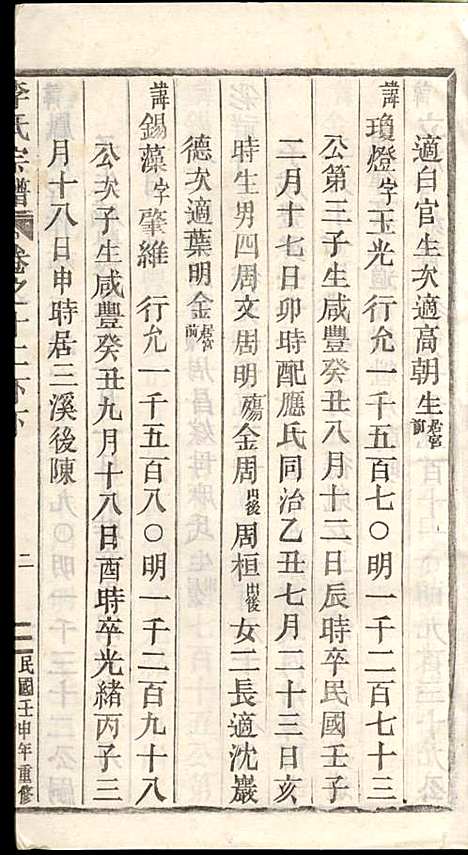 適白官生次適高朝生居官前
諱瓊燈字玉光 行允一千五百七〇明一千二百七十三
公第三子生咸豐癸丑八月十二日辰時卒民國壬子
二月十七日卯時配應氏同治乙丑七月二十三日亥
時生男四周文周明殤金周出後周桓出後女二長適沈巖
德次適葉明金居官前
諱錫藻字肇維 行允一千五百八〇明一千二百九十八
公次子生咸豐癸丑九月十八日酉時卒光緒丙子三
月十八日申時居三溪後陳
李氏宗譜 卷之十二下下 二 民國壬申年重修